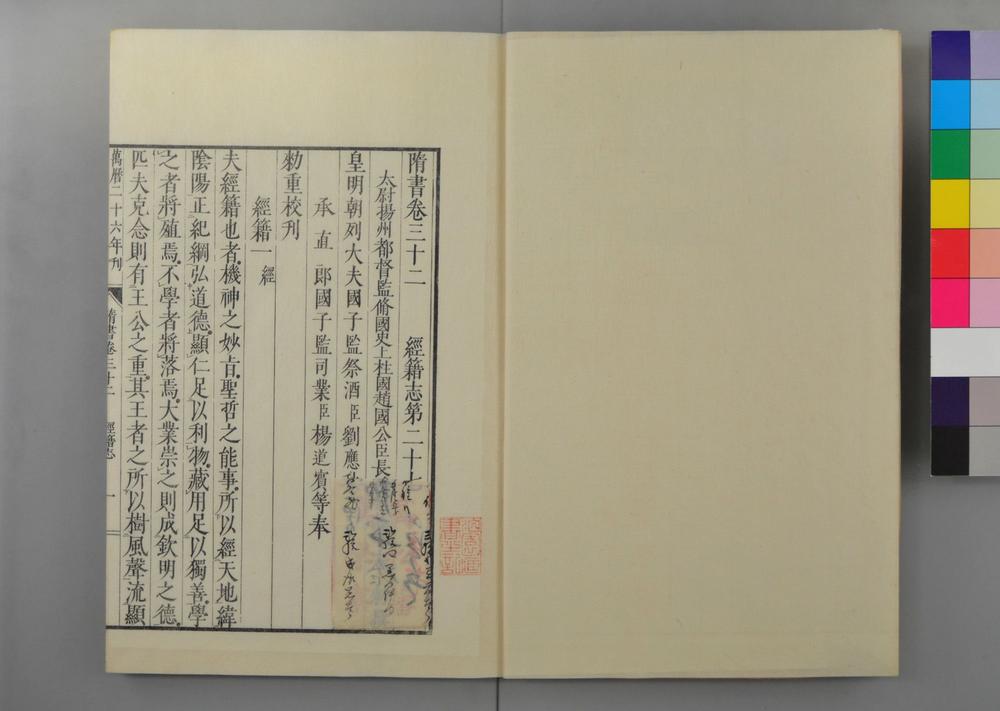 隋書卷三十二 經籍志第二十七
太尉揚州都督監脩國史上柱國趙國公臣長
皇明朝列大夫國子監祭酒臣劉應
承直郎國子監司業臣楊道賓等奉
勑重校刋
經籍一 經
夫經籍也者機神之妙㫖聖哲之能事所以經天地緯
陰陽正紀綱弘道德顯仁足以利物藏用足以獨善學
之者將殖焉不學者將落焉大業崇之則成欽明之德
匹夫克念則有王公之重其王者之所以樹風聲流顯
萬曆二十六年刋 隋書卷三十二 經籍志 一